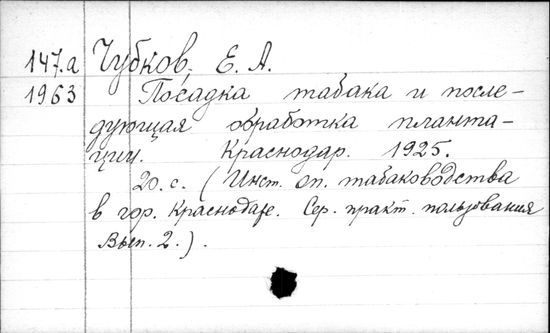 147.а Чубков, Е. А.
1963 Посадка табака и после-
дующая обработка планта-
ции. Краснодар. 1925.
20. с. (Инст. оп. табаководства
в гор. Краснодаре. Сер. практ. пользования
Вып. 2.).